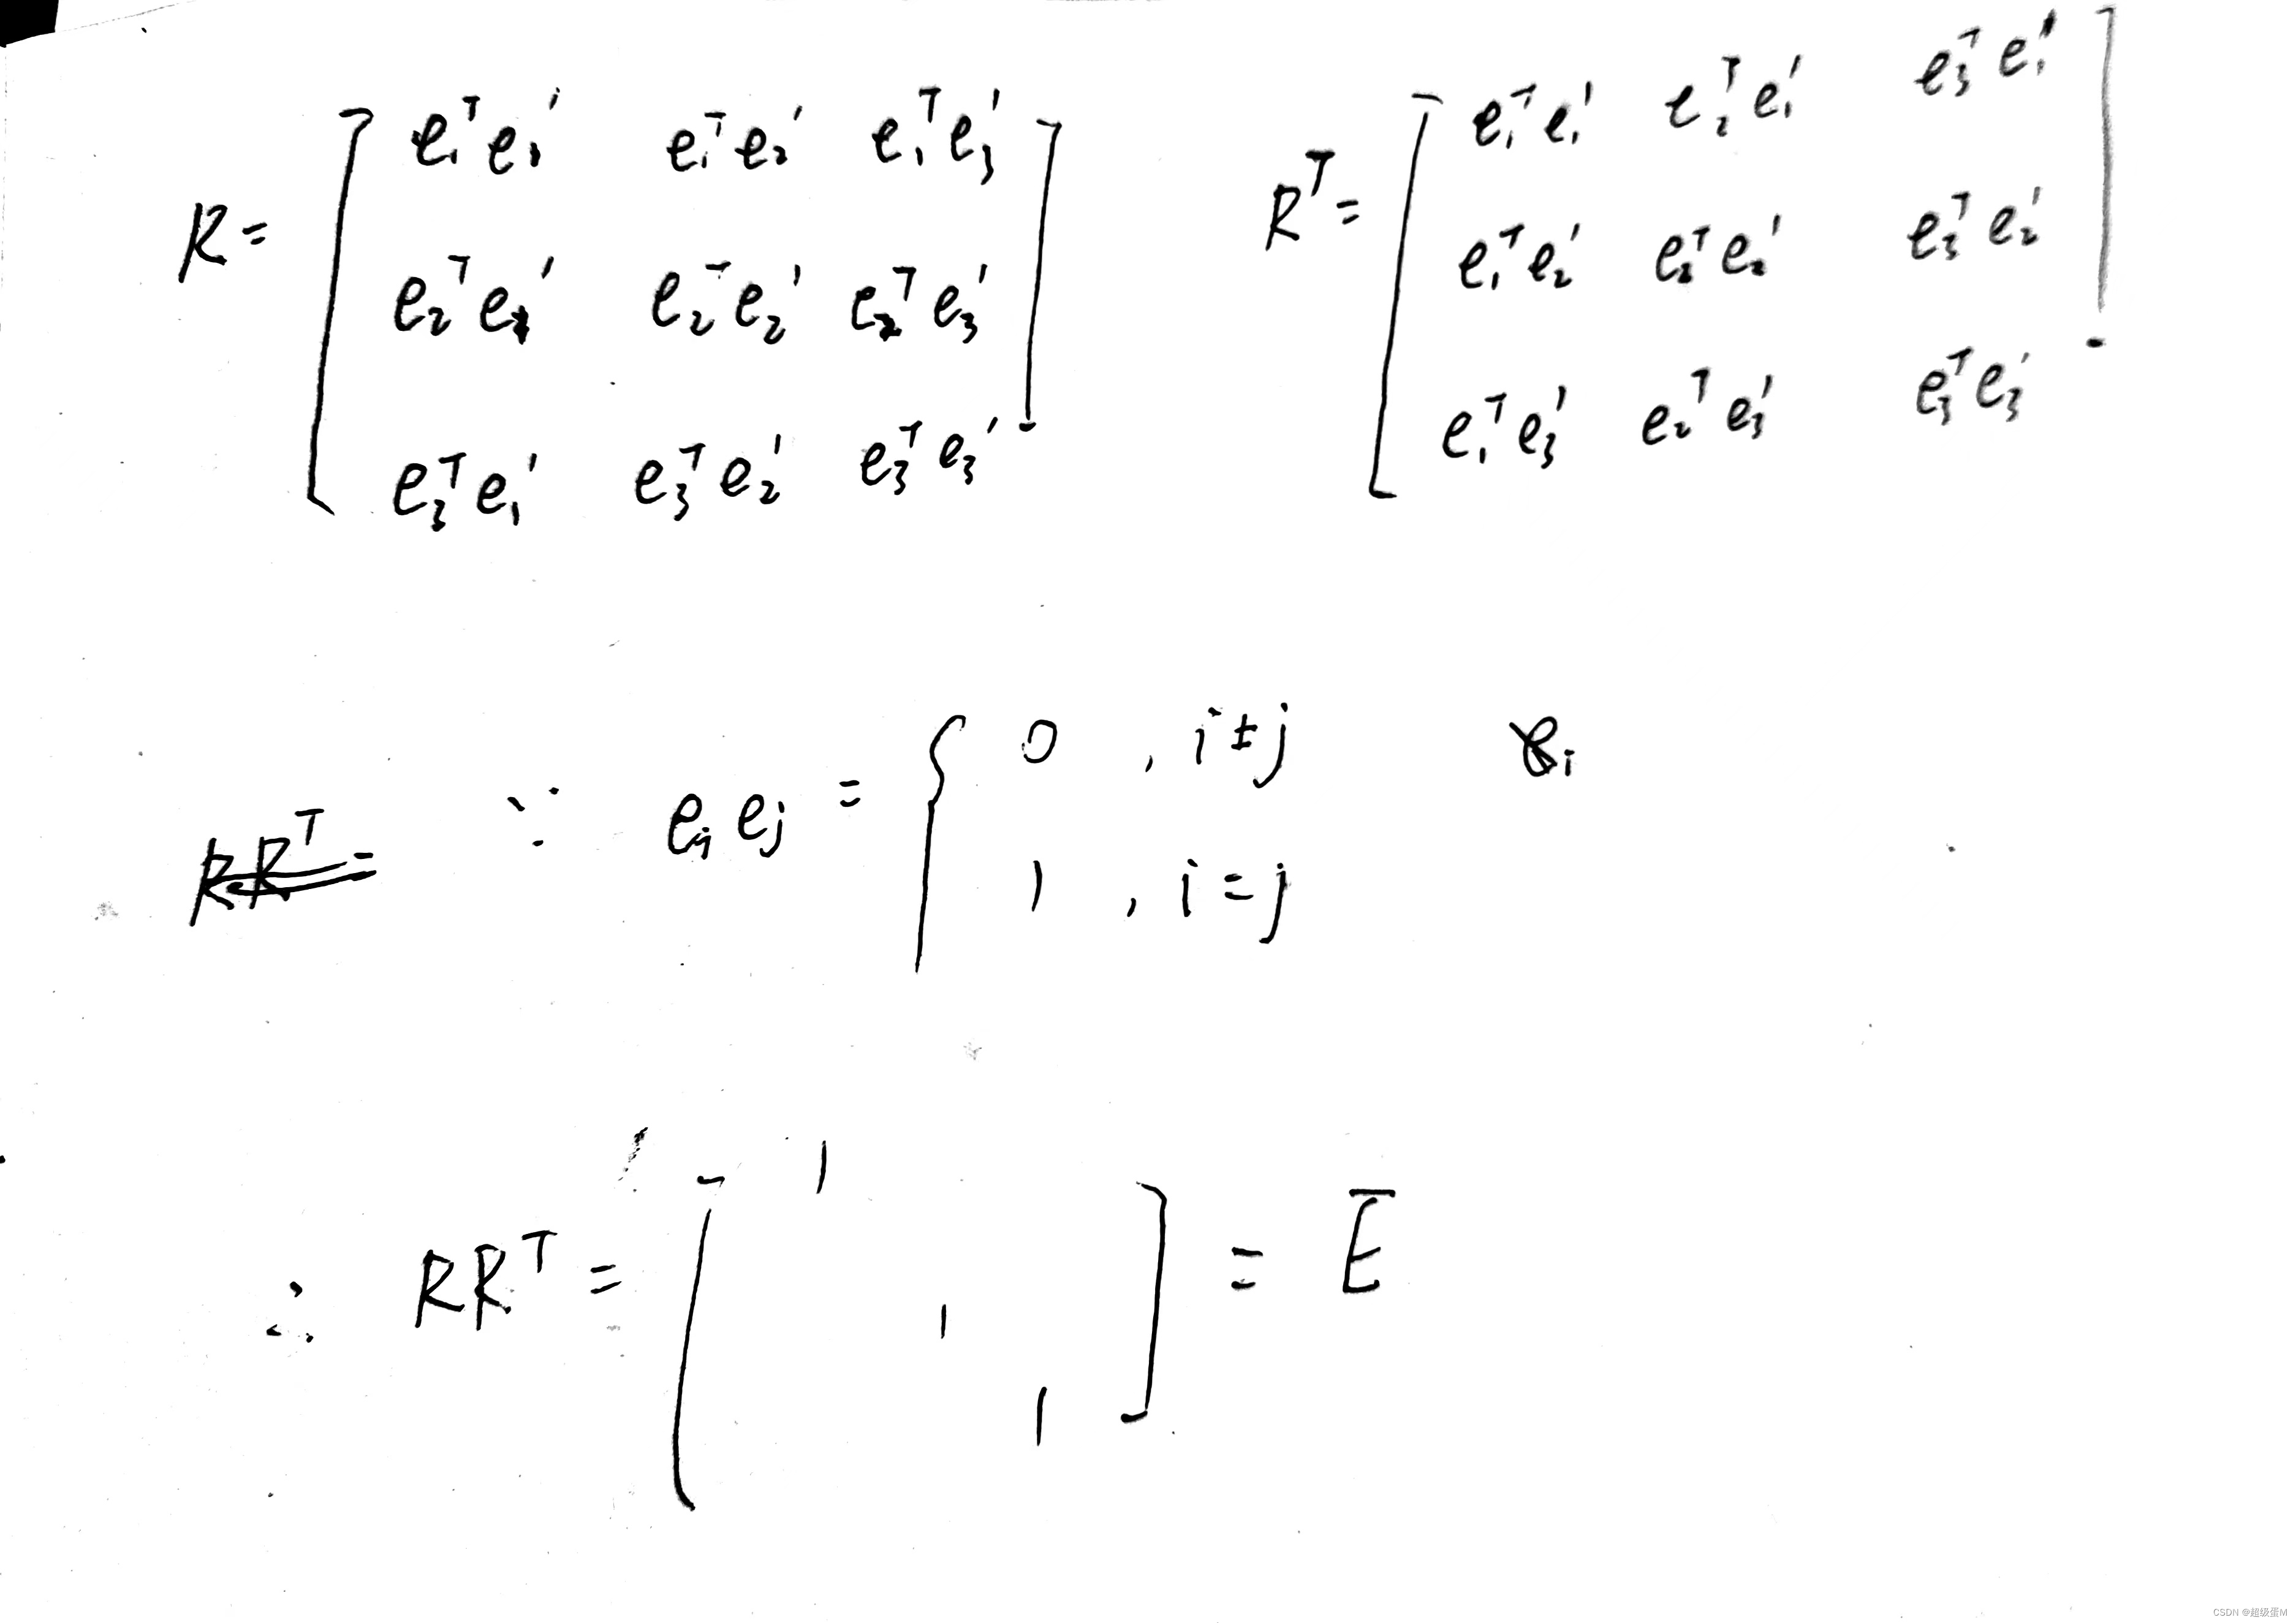 R = [ e₁ᵀe₁′ e₁ᵀe₂′ e₁ᵀe₃′
e₂ᵀe₁′ e₂ᵀe₂′ e₂ᵀe₃′
e₃ᵀe₁′ e₃ᵀe₂′ e₃ᵀe₃′ ]
Rᵀ = [ e₁ᵀe₁′ e₂ᵀe₁′ e₃ᵀe₁′
e₁ᵀe₂′ e₂ᵀe₂′ e₃ᵀe₂′
e₁ᵀe₃′ e₂ᵀe₃′ e₃ᵀe₃′ ]
RRᵀ= ∵ eᵢeⱼ = { 0 , i≠j
1 , i=j
eᵢ
∴ RRᵀ = [ 1
1
1 ] = E
CSDN @超级蛋M